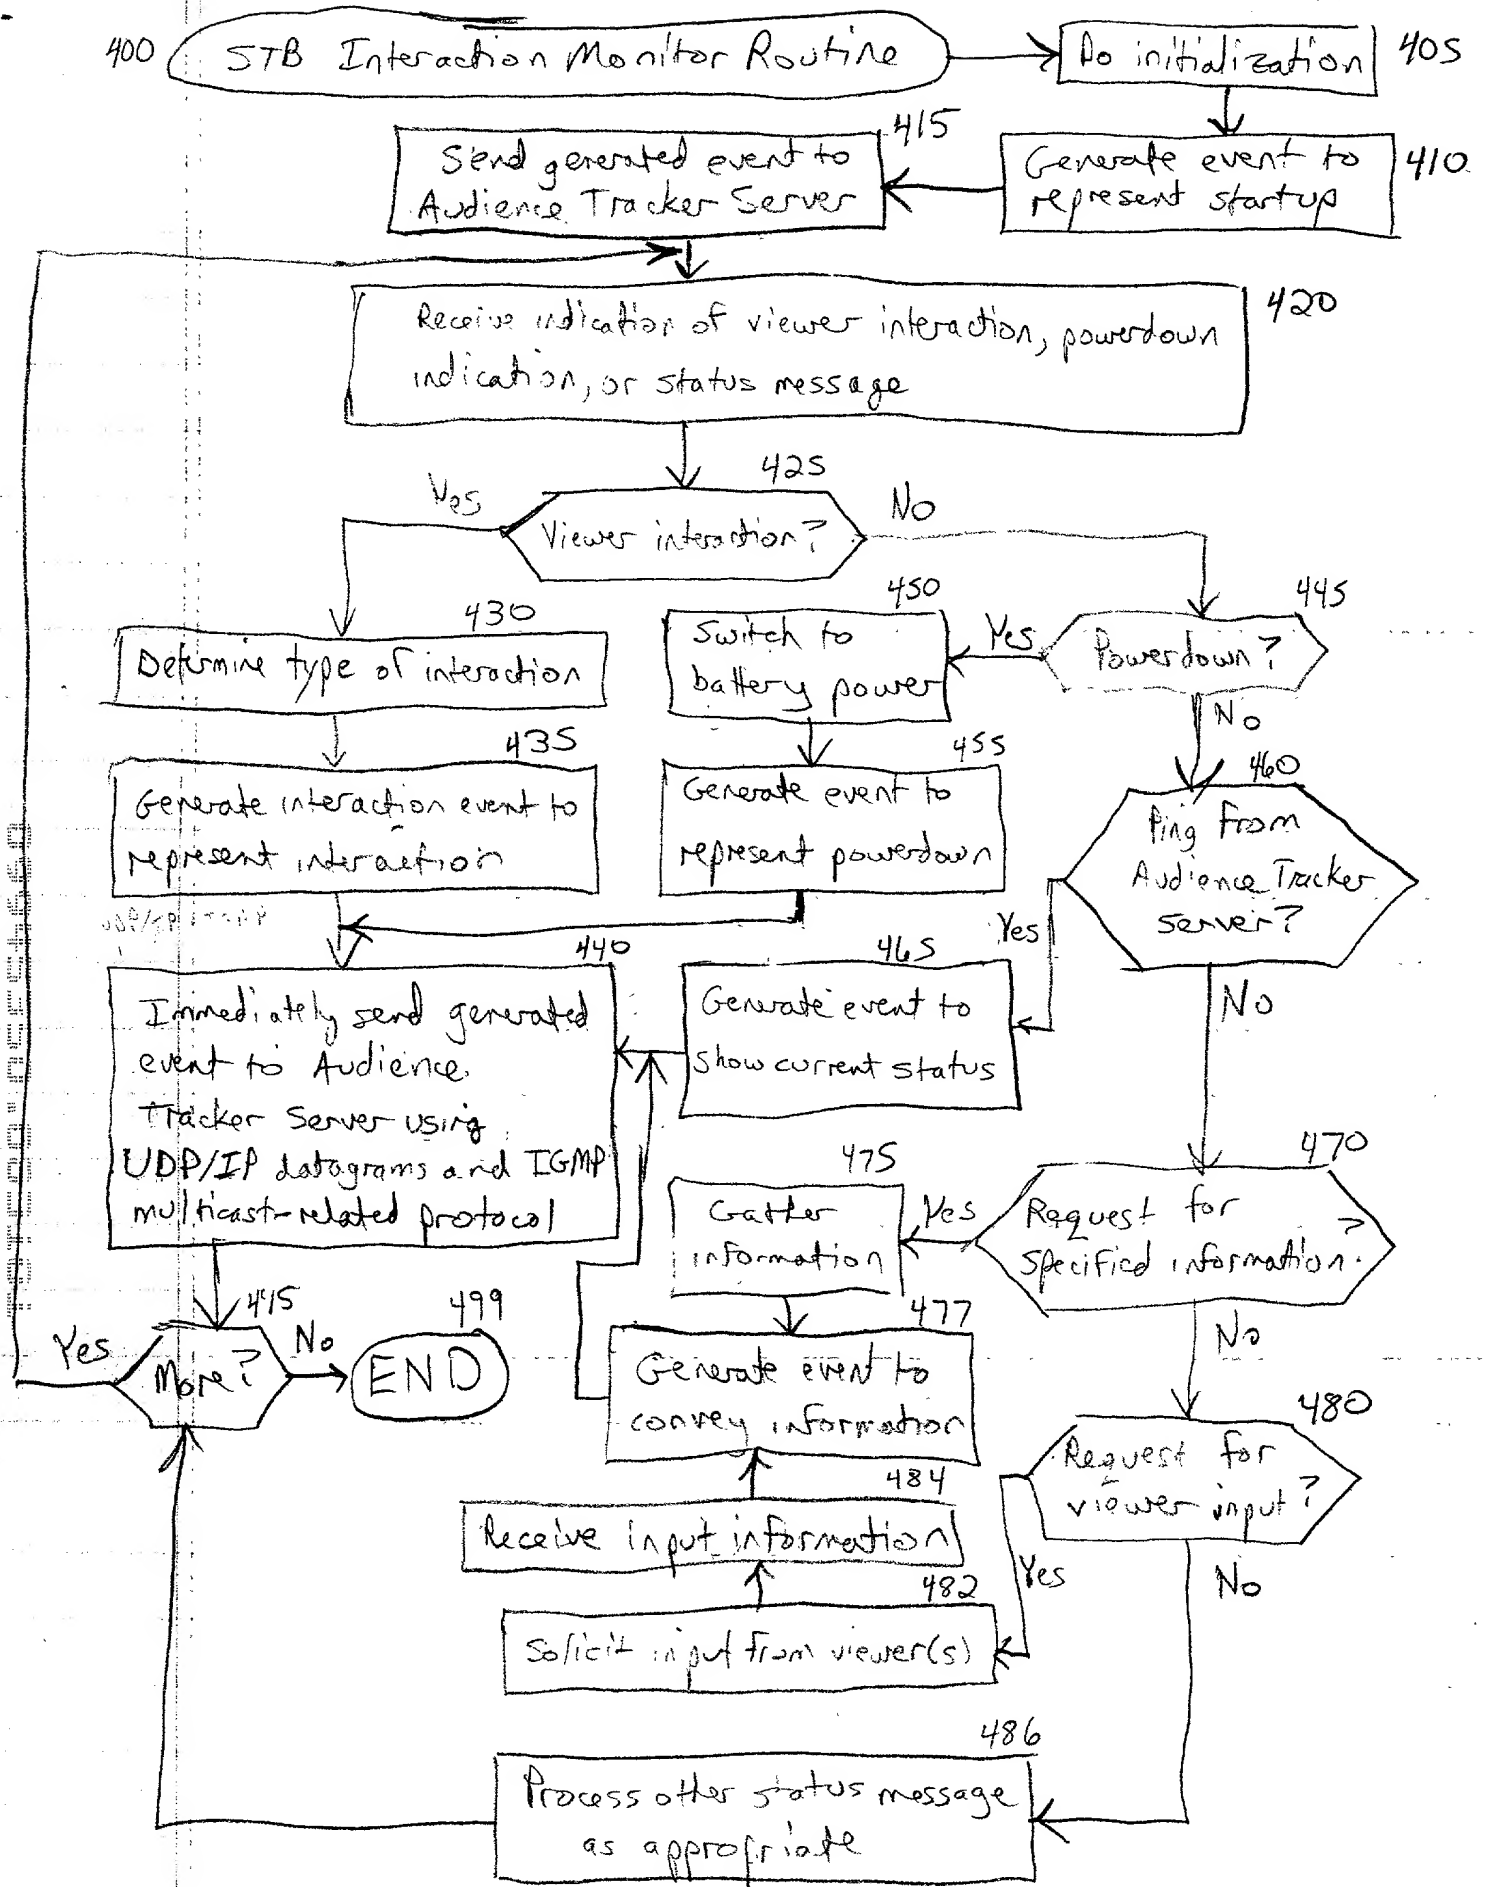 400 STB Interaction Monitor Routine
Do initialization 405
415
Send generated event to
Audience Tracker Server
Generate event to
represent startup
410
420
Receive indication of viewer interaction, powerdown
indication, or status message
425
Yes
Viewer interaction?
No
430
Determine type of interaction
435
Generate interaction event to
represent interaction
445
Powerdown?
Yes
No
450
Switch to
battery power
455
Generate event to
represent powerdown
460
Ping from
Audience Tracker
server?
Yes
No
440
Immediately send generated
event to Audience
Tracker Server using
UDP/IP datagrams and IGMP
multicast-related protocol
465
Generate event to
show current status
470
Request for
specified information?
Yes
No
475
Gather
information
477
Generate event to
convey information
495
More?
Yes
No
499
END
480
Request for
viewer input?
Yes
No
484
Receive input information
482
Solicit input from viewer(s)
486
Process other status message
as appropriate